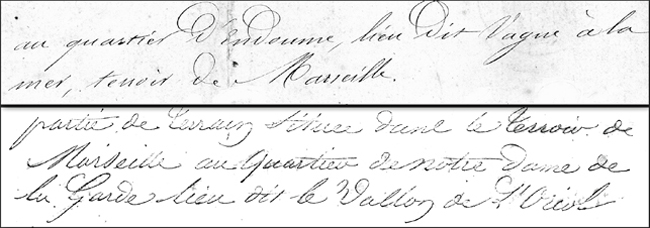 au quartier d'Endoume, lieu dit Vague à la
mer, terroir de Marseille.
partie de terrain située dans le terroir de
Marseille au quartier de notre dame de
la Garde lieu dit le Vallon de l'Oriol